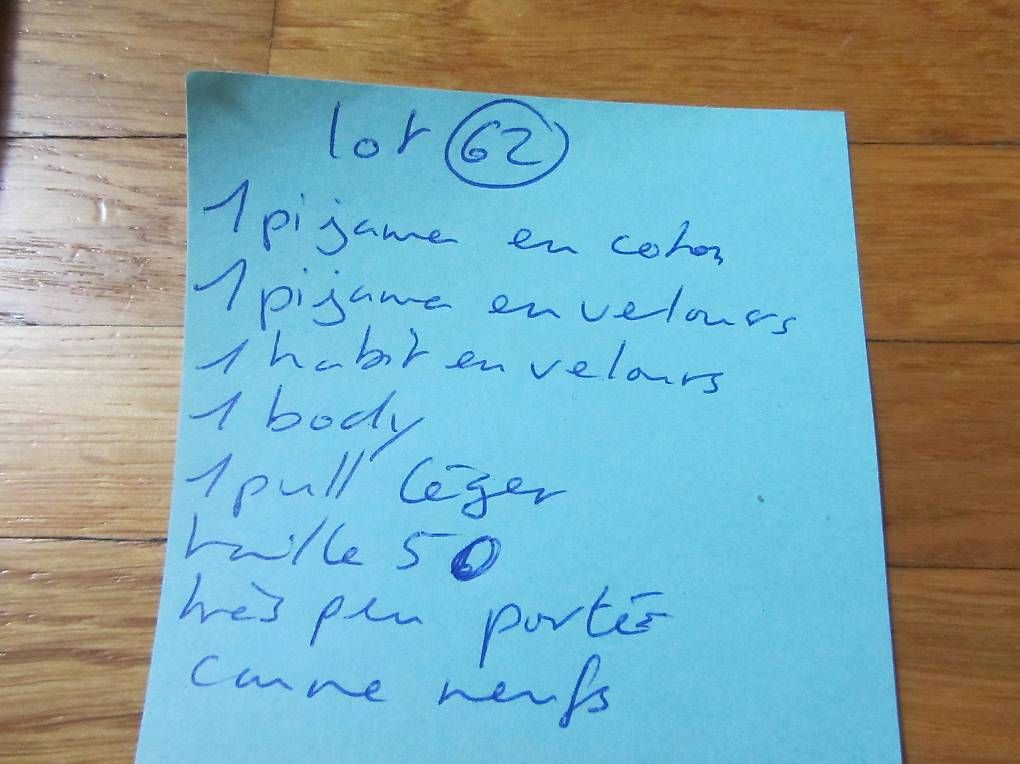 lot 62
1 pijama en coton
1 pijama en velours
1 habit en velours
1 body
1 pull léger
taille 50
très peu porté
comme neufs